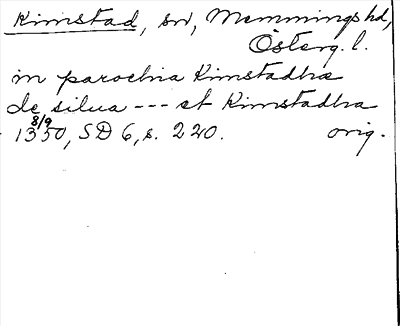 Kimstad, sn, Memmings hd,
Österg. l.
in parochia Kimstadha
de silua --- et Kimstadha
8/9
1350, SD 6, s. 220. orig.